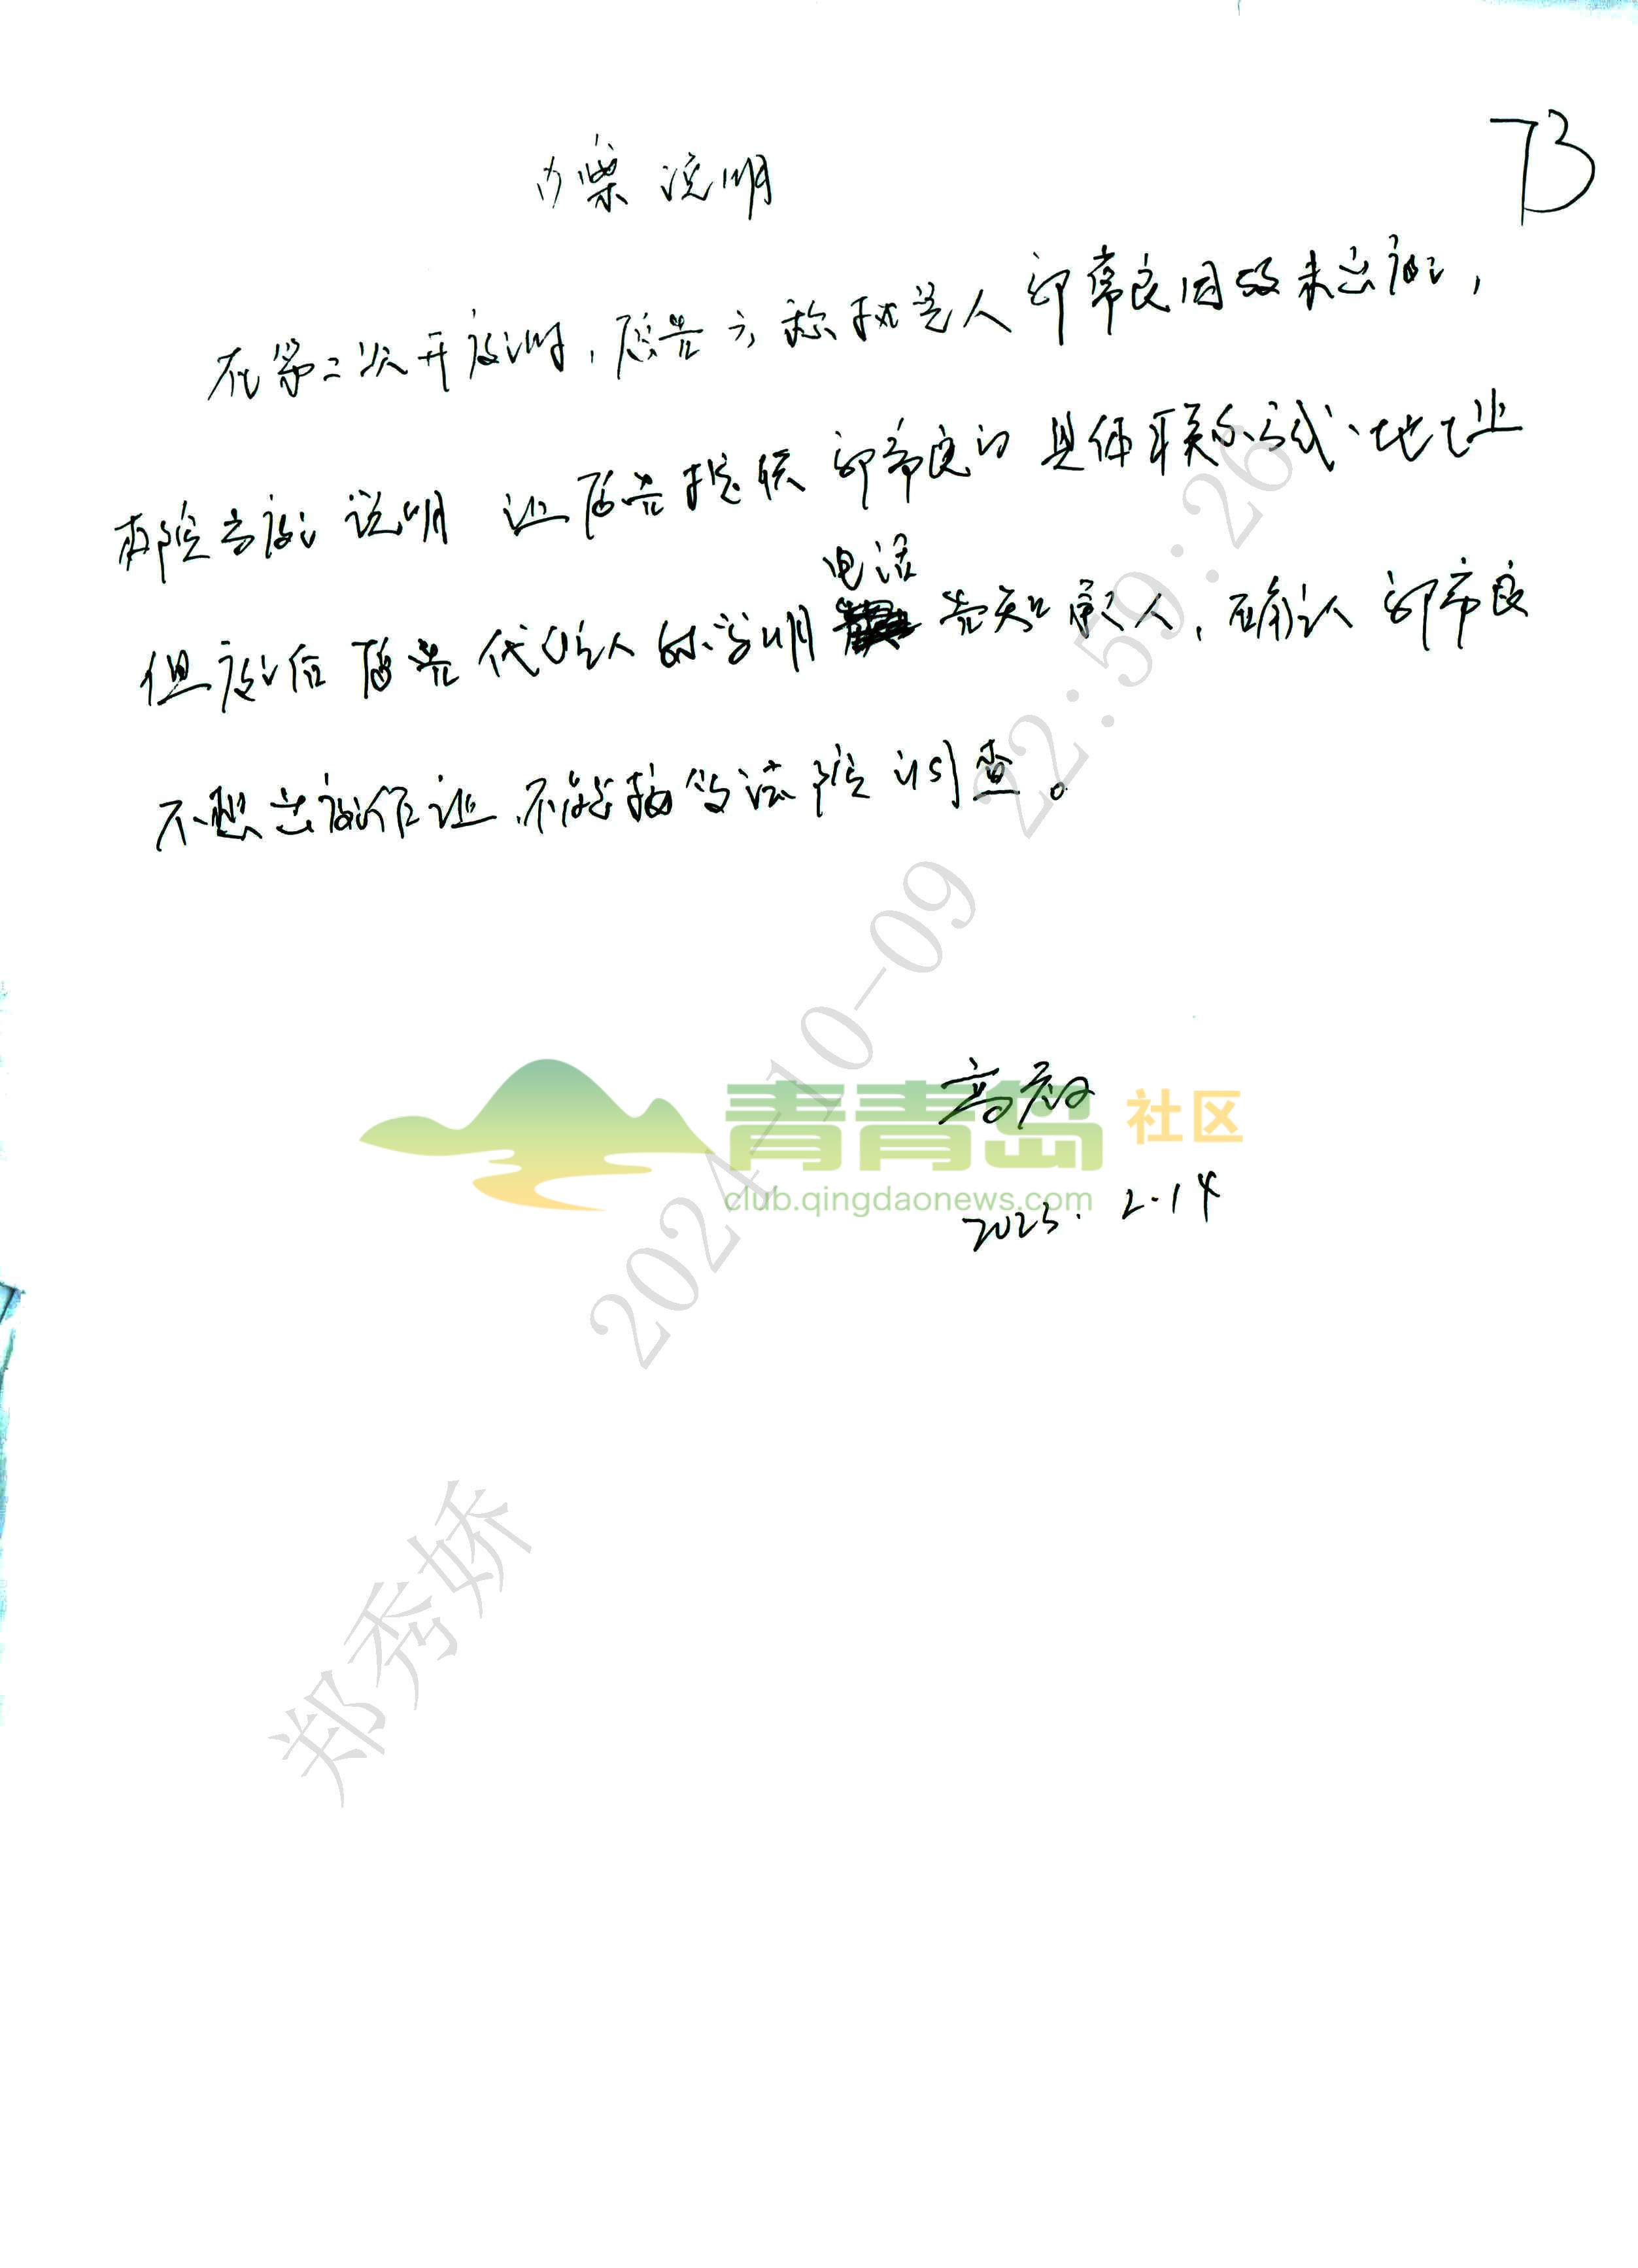 73
办案说明
在第二次开庭时，原告方称执笔人郭常良因故未出庭，
本院当庭说明 让原告提供郭常良的具体联系方式、地址
但庭后原告代理人 明电话告知承办人，确认郭常良
不想出庭作证，不能接受法院调查。
青青岛社区
club.qingdaonews.com
高
2023.2.14
郑秀娇 2024-10-09 22:59:26